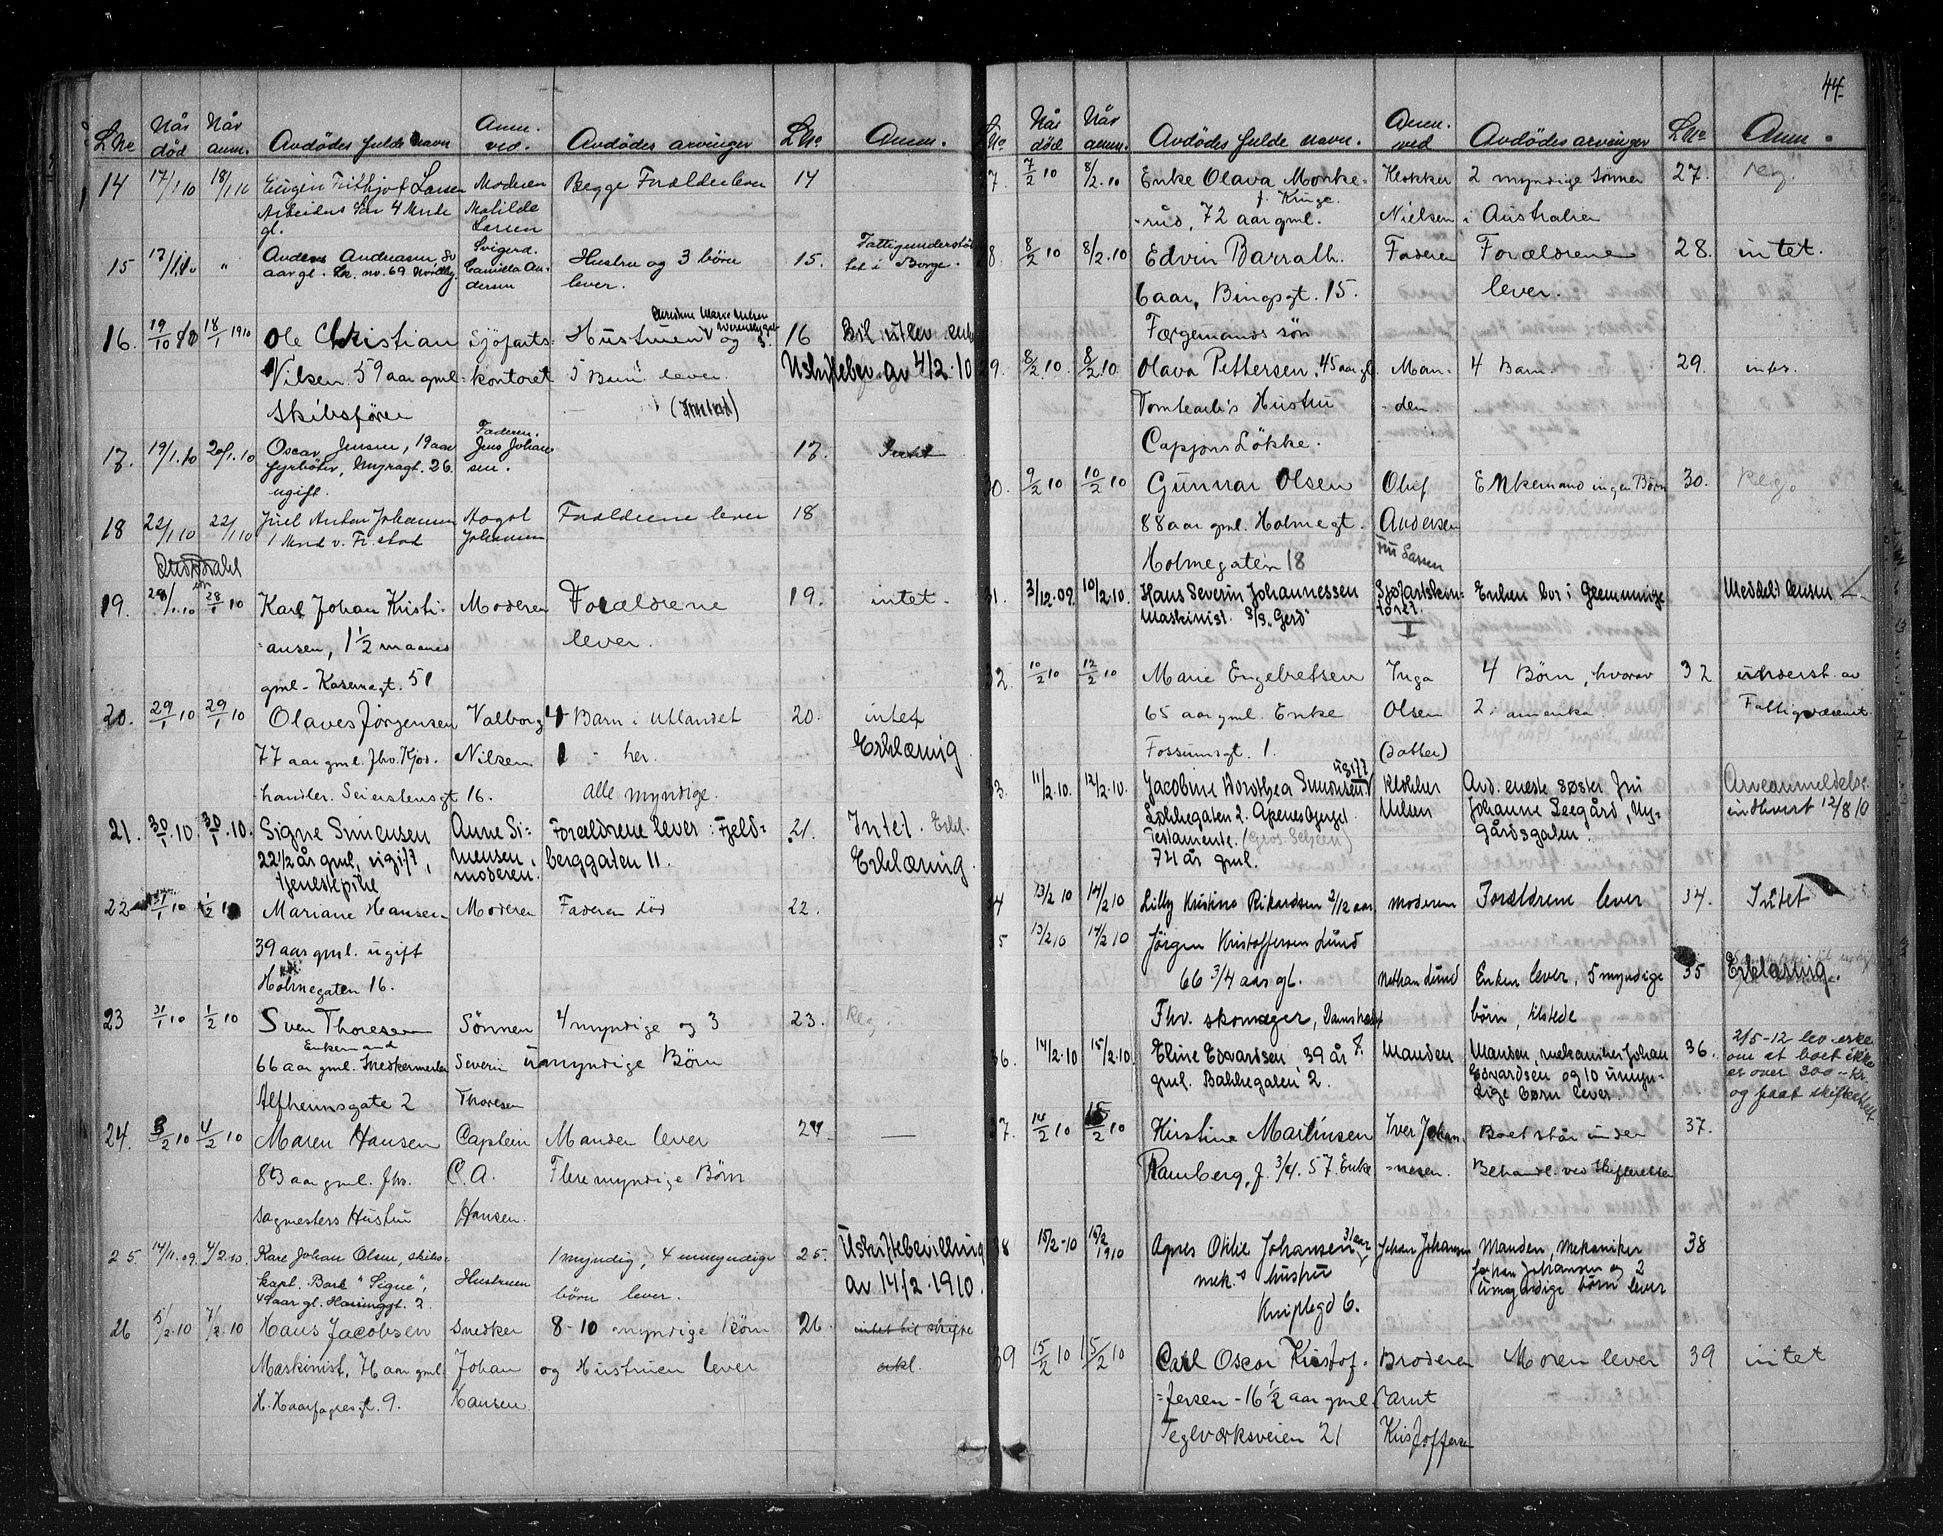 L No Når død Når anm. Avdödes fulde navn Anm. ved. Avdödes arvinger L No Anm.
14 17/1 10 18/1 10 Eugen Frithjof Larsen Moderen Begge Forældre lever 14
Arbeiders Søn 4 Mndr Matilde
gl. Larsen
15 17/1 10 " Anders Andreasen, Svigerd. Hustru og 3 börn 15. Fattigunderstöt
aar gl. No. 69 Camilla An lever. tet i Borge.
dersen
16. 19/10 18/1 1910 Ole Christian Sjöfarts- Hustruen og 16 Bil. utlev. enk
Nilsen 59 aar gml. kontoret 5 Barn lever. Uskiftebev. av 4/2.10
Skibsförer
17. 19/1.10 20/1.10 Oscar Jensen, 19 aar Faderen. 17. Intet
fyrböter, Myragt. 26 Jens Johan
ugift. sen.
18 22/1 10 22/1 10 Juel Anton Johansen Aagot Forældrene lever 18
1 Mnd v. Fr.stad Johansen
19. 28/1.10 28/1 10 Karl Johan Kristi- Moderen Forældrene 19. intet.
=ansen, 1 1/2 maaned lever.
gml - Kasernegt. 51
20. 29/1 10 29/1 10 Olaves Jörgensen Valborg 4 Barn i Utlandet 20. intet
77 aar gml. fhv. Kjøb. Nilsen 1 - her. Erklæring
handler. Seierstensgt 16. alle myndige.
21. 30/1.10 30/1.10. Signe Simensen Anne Si= Forældrene lever: Fjeld= 21. Intet. Erkl.
22 1/2 år gml, ugift, mensen, berggaten 11. Erklæring
tjenestepike moderen.
22 31/1 10 1/2 10 Mariane Hansen Moderen Faderen död 22.
39 aar gml. ugift
Holmegaten 16.
23 31/1 10 1/2 10 Sven Thoresen Sönnen 4 myndige og 3 23. Reg.
Enkemand
66 aar gml. Snedkermester Severin umyndige Börn
Alfheimsgate 2 Thoresen
24. 3/2 10 4/2 10 Maren Hansen Captein Manden lever 24 —
83 aar gml. fhv. C.A. Flere myndige Börn
Sagmesters Hustru Hansen.
25. 14/11.09. 4/2.10. Karl Johan Olsen, skibs- 1 myndig, 4 umyndige 25. Uskiftebevilling
kapt. Bark "Signe", Hustruen börn lever. av 14/2.1910.
aar gl. 2.
26 5/2.10 7/2.10 Hans Jacobsen Snedker 8-10 myndige börn 26. intet bil skifte
Maskinist, aar gml Johan og Hustruen lever erkl.
H. Haarfagresgt. 9. Hansen
44
L No. Når död Når anm. Avdödes fulde navn. Anm. ved Avdödes arvinger L No Anm.
27. 7/2 10 8/2.10 Enke Olava Monke- Klokker 2 myndige Sönner 27. Reg.
f. Kringe.
-rud, 72 aar gml. Nielsen i Australien
28. 8/2 10 8/2.10 Edvin Barrath. Faderen Forældrene 28. intet.
6 aar, Bingsgt. 15. lever.
Færgemands sön
29. 8/2.10. 8/2.10 Olava Pettersen, 45 aar gl Man- 4 Barn. 29. intet.
Tomtearb's Hustru den.
Cappens Lökke.
30. 9/2 10 10/2 10 Gunnar Olsen Oluf Enkemand ingen Börn 30. Reg.
88 aar gml. Holmegt. Andersen
Holmegaten 18
31. 3/12.09. 10/2.10. Hans Severin Johannessen Sjöfartskon= Enken bor i Glemminge
maskinist S/S. "Gerd" toret
32. 10/2 10 12/2 10 Marie Engebretsen Inga 4 Börn, hvorav 32 underst. av
65 aar gml. Enke Olsen 2 i amerika Fattigvæsenet.
Fossumsgt. 1. (datter)
33. 11/2.10. 12/2.10. Jacobine Dorothea Simonsen ugift Klokker Avd. eneste søster Fru Arveanmeldelse
Lökkegaten 2. Nilsen Johanne Seegård, Ny- indlevert 12/8 10
Testamente. gårdsgaten.
74 år gml.
34 13/2 10 14/2 10 Lilly Kristine Rikardsen 2/12 aar moderen Forældrene lever 34. Intet
35 13/2 10 14/2 10 Jörgen Kristoffersen Lund
66 3/4 aar gl. Nathan Lund Enken lever, 5 myndige 35 Erklæring.
Fhv. skomager, börn, tilstede
36. 14/2.10 15/2.10. Eline Edvardsen 39 år Manden Manden, mekaniker Johan 36. 2/5-12 lev. erkl.
gml. Bakkegaten 2. Edvardsen og 10 umyn- om at boet ikke
dige børn lever. er over 300 - kr.
og frat skifte
37. 14/2 10 15/2 10 Kirstine Martinsen Iver Johan- Boet står under 37.
Ramberg, f. 3/4.57. Enke =nesen. Behandl. ved skifteretten
38 15/2-10 15/2 1910 Agnes Otilie Johansen 31 aar Johan Johansen Manden, Mekaniker 38
mek.s hustru Johan Johansen og 2
Kniplegd 6. umyndige börn lever
39 15/2 10 15/2 10 Carl Oscar Kristof- Broderen Moren lever 39 intet
=fersen - 16 1/2 aar gml. Arnt
Teglværksveien 21 Kristoffersen